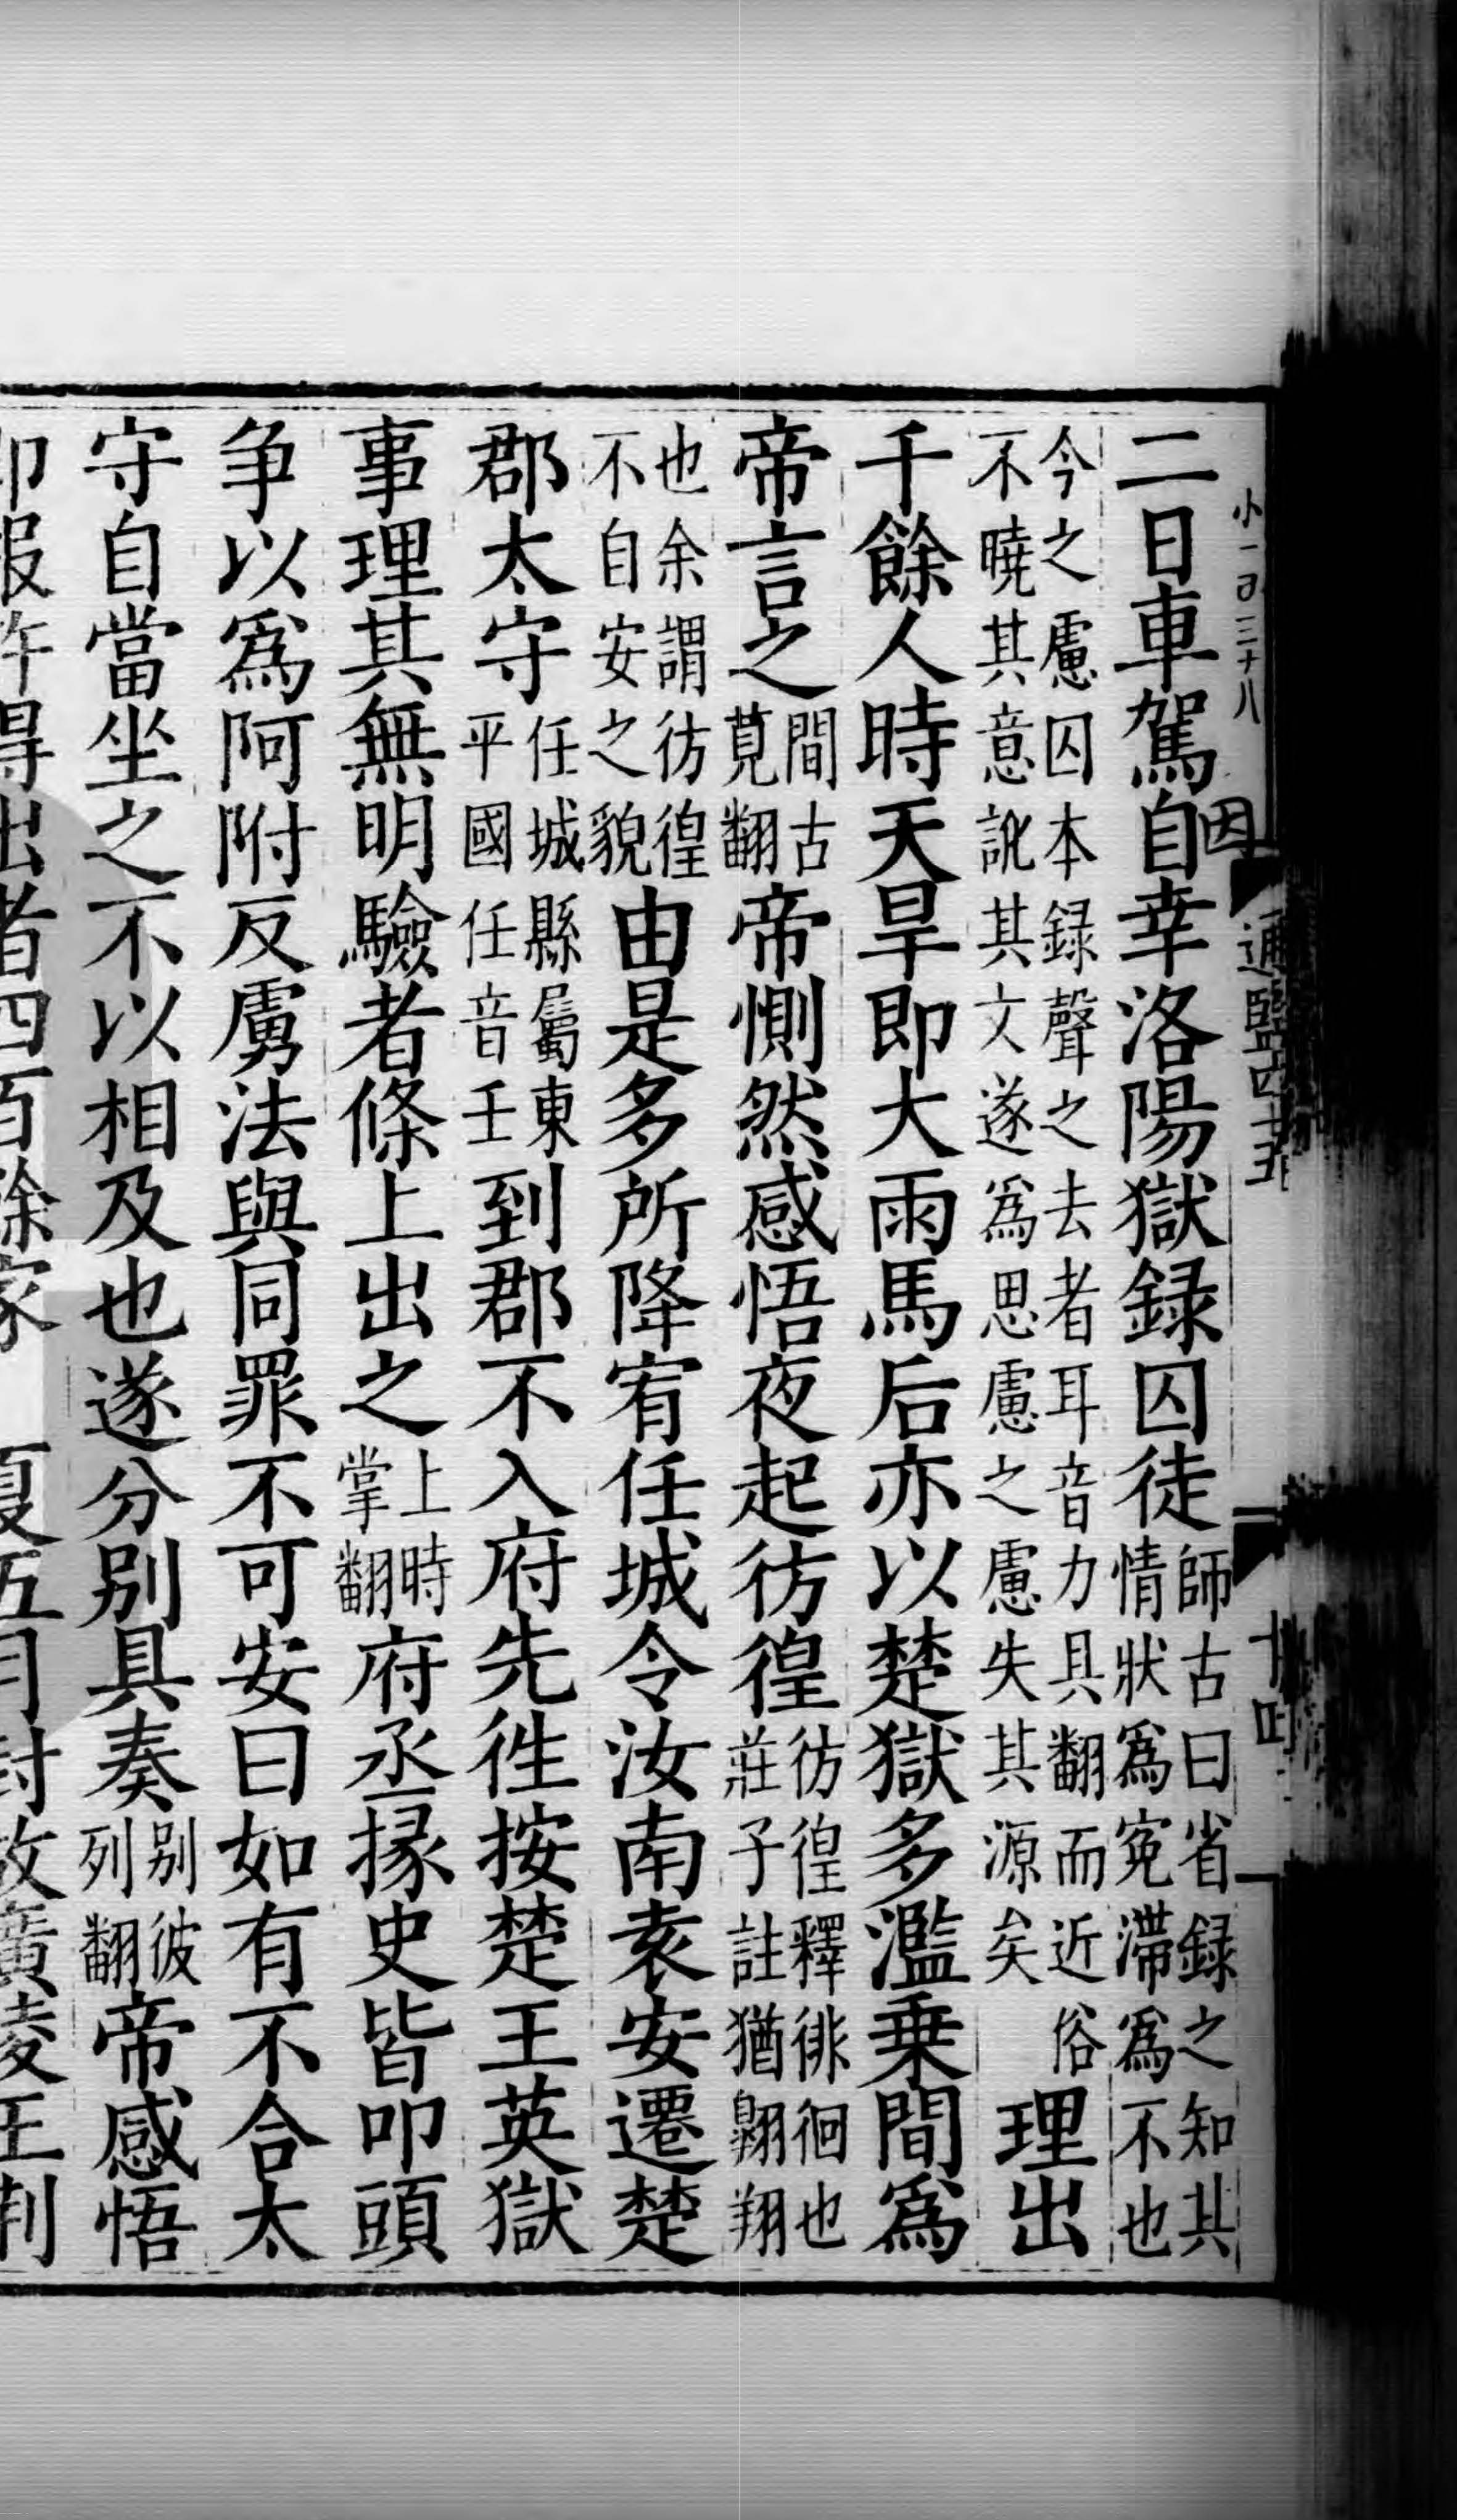 小一百三十八
因
通鑑四十五
二日車駕自幸洛陽獄録囚徒師古曰省録之知其情狀爲寃滯爲不也
今之慮囚本録聲之去者耳音力具翻而近俗不曉其意訛其文遂爲思慮之慮失其源矣理出
千餘人時天旱即大雨馬后亦以楚獄多濫乗間爲
帝言之間古莧翻帝惻然感悟夜起彷徨彷徨釋徘徊也莊子註猶翱翔
也余謂彷徨不自安之貌由是多所降宥任城令汝南袁安遷楚
郡太守任城縣屬東平國任音壬到郡不入府先徃按楚王英獄
事理其無明驗者條上出之上時掌翻府丞掾史皆叩頭
争以爲阿附反虜法與同罪不可安曰如有不合太
守自當坐之不以相及也遂分别具奏别彼列翻帝感悟
即報許得出者四百餘家 夏五月封故廣陵王荆